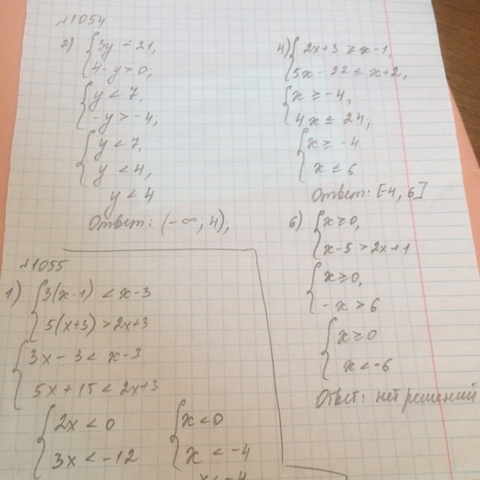 №1054
2) {3y < 21,
4 - y > 0,
{y < 7,
-y > -4,
{y < 7,
y < 4,
y < 4
Ответ: (-∞; 4),
4) {2x+3 ≥ x-1,
5x - 22 ≤ x+2,
{x ≥ -4,
4x ≤ 24,
{x ≥ -4
x ≤ 6
Ответ: [-4, 6]
6) {x ≥ 0,
x-5 > 2x+1
{x ≥ 0,
-x > 6
{x ≥ 0
x < -6
Ответ: нет решений
№1055
1) {3(x-1) < x-3
5(x+3) > 2x+3
{3x - 3 < x-3
5x + 15 < 2x+3
{2x < 0
3x < -12
{x < 0
x < -4
x < -4